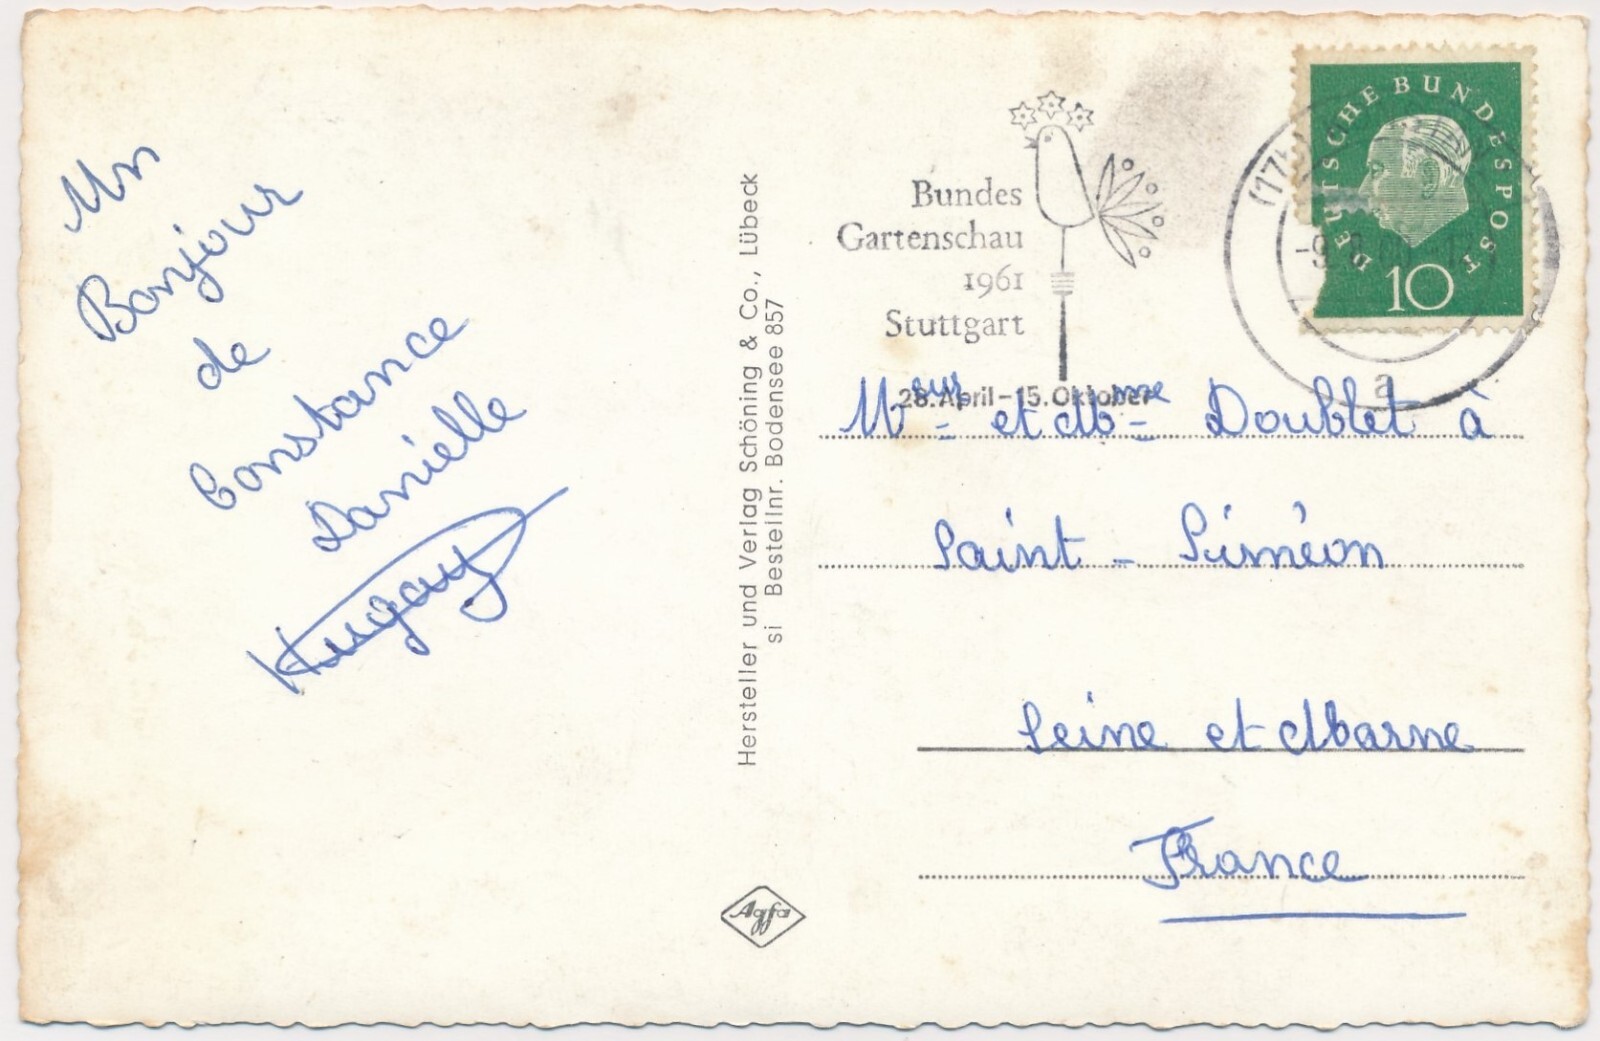 Un
Bonjour
de
Constance
Danielle
Hersteller und Verlag Schöning & Co., Lübeck
si Bestellnr. Bodensee 857
Agfa
Bundes
Gartenschau
1961
Stuttgart
28. April - 15. Oktober
DEUTSCHE BUNDESPOST
10
a
Msur et Mme Doublet à
Saint - Siméon
Seine et Marne
France